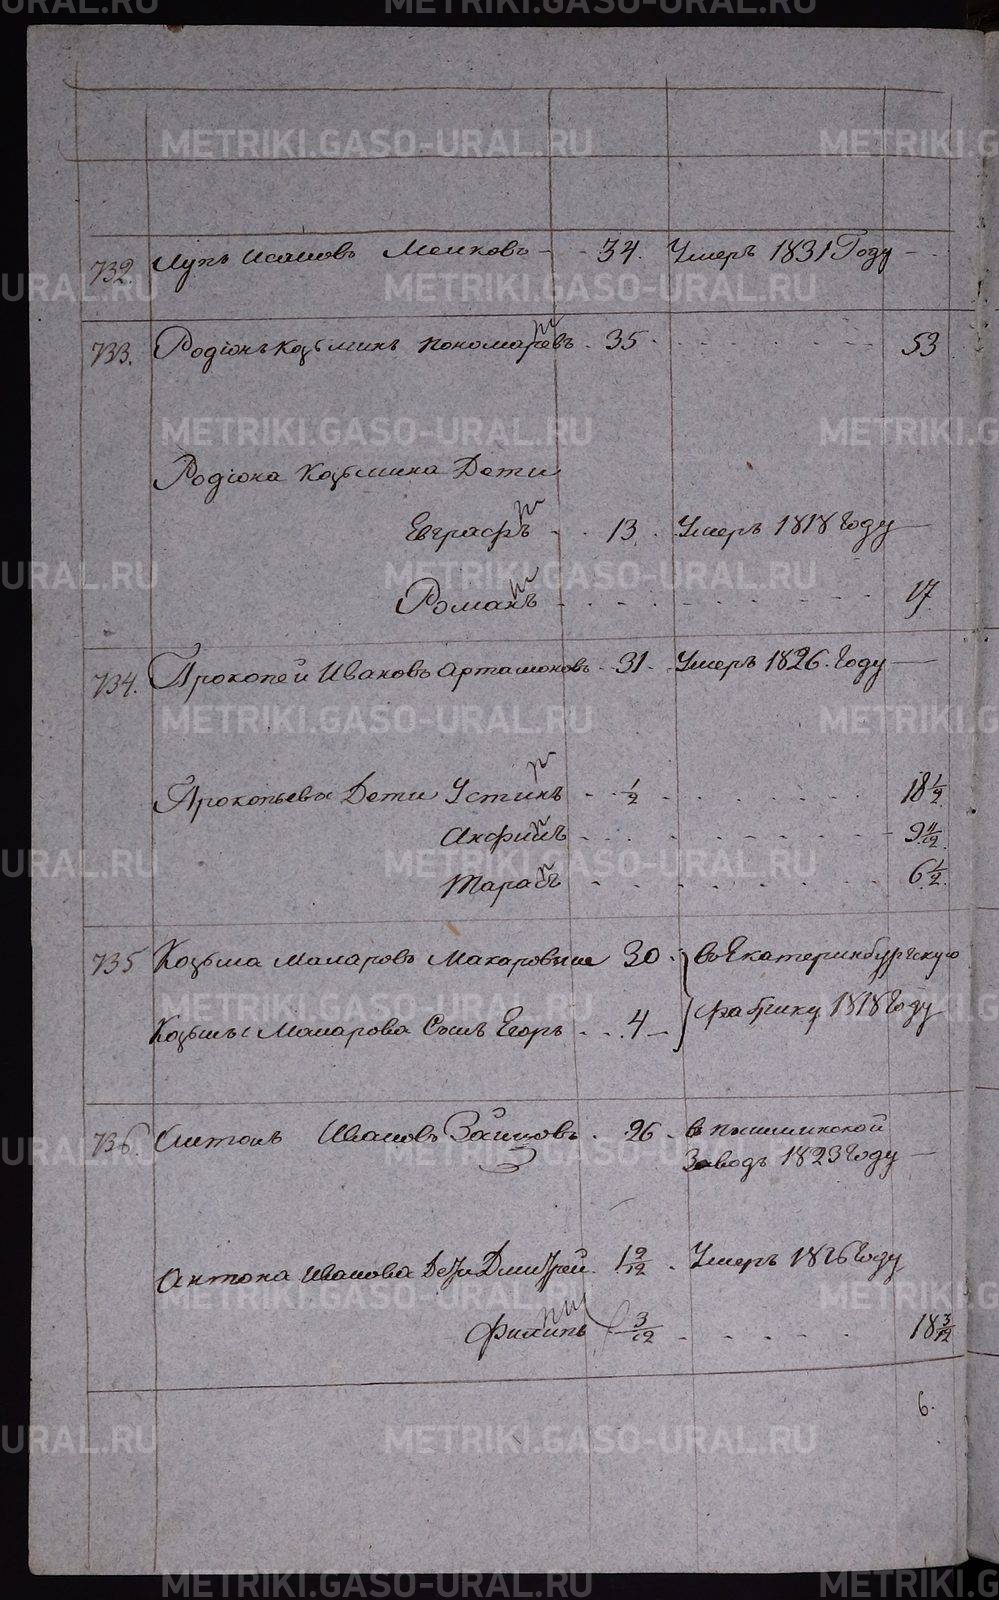 732. Лупъ Исаковъ Мелковъ - - 34. Умеръ 1831 Году -
733. Родіонъ Козьминъ Пономаревъ - 35 - 53
Родіона Козьмина Дети
Евграфъ - 13. Умеръ 1818 Году -
Романъ - 17
734. Прокопей Ивановъ Артамоновъ - 31 - Умеръ 1826. Году -
Прокопьева Дети Устинъ - 1/2 - 18 1/2
Анфимъ - 9 11/12
Тарасъ - 6 1/2
735 Козьма Макаровъ 30 - въ Екатеринбургскую
фабрику 1818 Году
Козьмы Макарова Сынъ Егоръ - 4 -
736. Антонъ Ивановъ Зайцовъ - 26 - в пышминской
Заводъ 1823 Году -
Антона Иванова Дети Дмитрей - 1 9/12 - Умеръ 1826 Году
Филипъ - 3/12 - 18 3/12
6.
METRIKI.GASO-URAL.RU